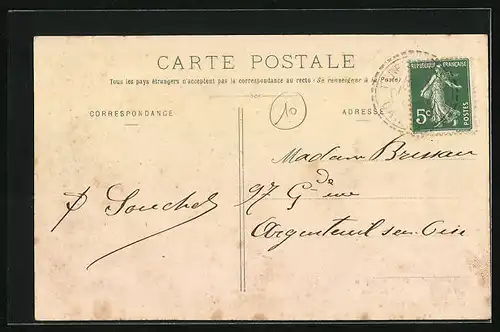 CARTE POSTALE
Tous les pays étrangers n'acceptent pas la correspondance au recto (Se renseigner à la Poste)
10
CORRESPONDANCE
ADRESSE
REPUBLIQUE FRANÇAISE
5c
POSTES
Madame Brissau
de
97 Gde rue
Argenteuil
P Souchet